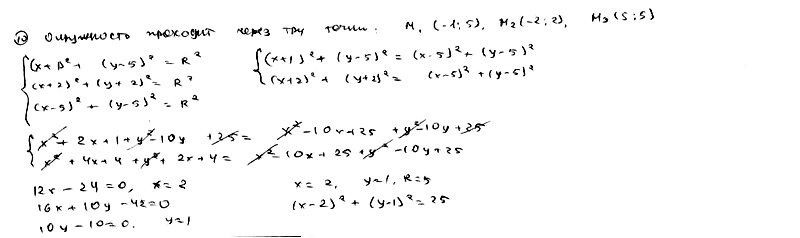 10 Окружность проходит через три точки: M₁ (-1;5), M₂(-2;2), M₃(5;5)
(x+1)² + (y-5)² = R²
(x+2)² + (y+2)² = R²
(x-5)² + (y-5)² = R²
(x+1)² + (y-5)² = (x-5)² + (y-5)²
(x+2)² + (y+2)² = (x-5)² + (y-5)²
x² + 2x + 1 + y² - 10y + 25 = x² - 10x + 25 + y² - 10y + 25
x² + 4x + 4 + y² + 2x + 4 = x² - 10x + 25 + y² - 10y + 25
12x - 24 = 0, x = 2
16x + 10y - 42 = 0
10y - 10 = 0. y = 1
x = 2, y = 1, R = 5
(x-2)² + (y-1)² = 25